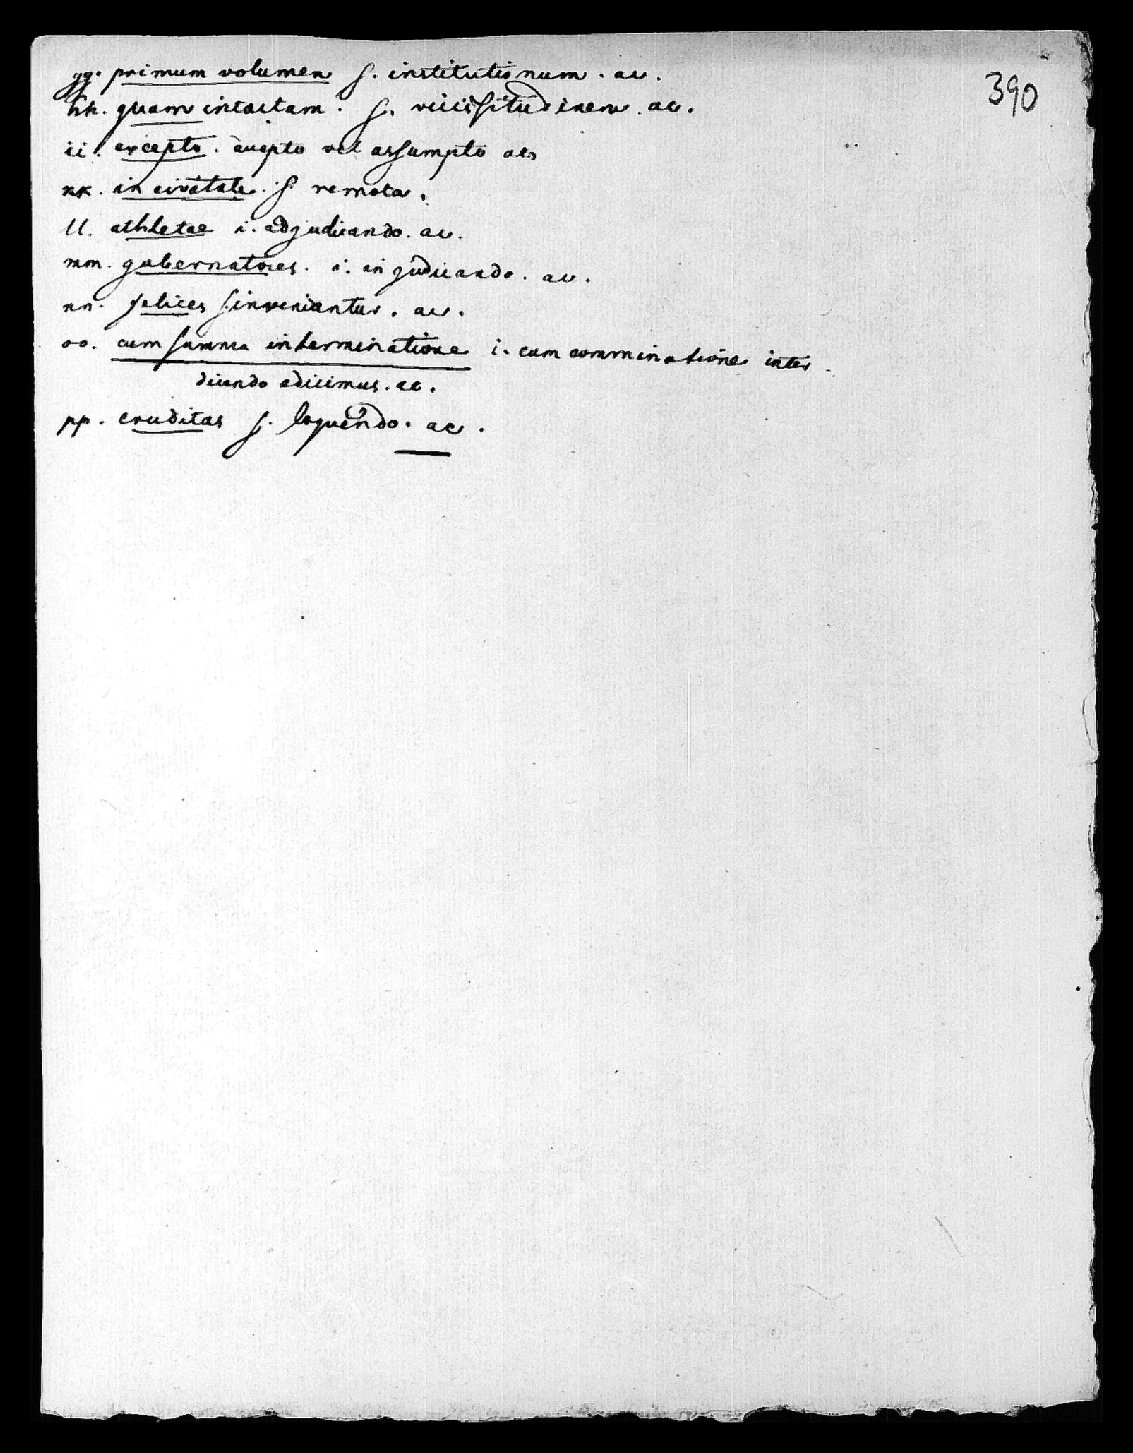 390
gg. primum volumen s. institutionum. ac.
hh. quam intactam. s. vicissitudinem. ac.
ii. excepto. accepto vel assumpto ac.
kk. in civitate. s remota.
ll. athletae i. adjudicando. ac.
mm. gubernatores. i. in judicando. ac.
nn. felices s. inveniantur. ac.
oo. cum summa interminatione i. cum comminatione inter
dicendo edicimus. ac.
pp. eruditas s. loquendo. ac.